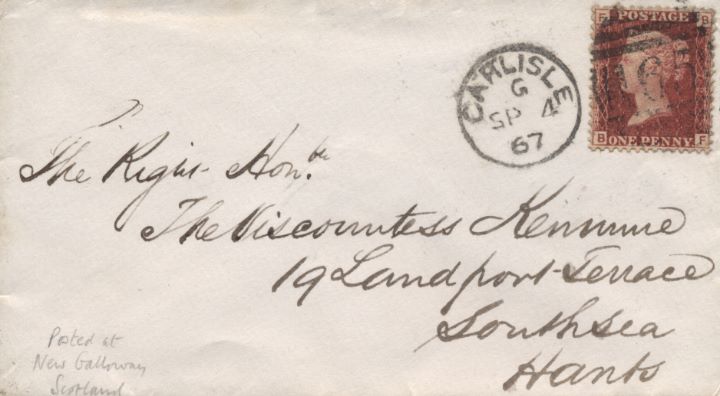 F POSTAGE B
CARLISLE
G
SP 4
67
165
B ONE PENNY F
The Right Hon.ble
The Viscountess Kenmure
19 Landport Terrace
Southsea
Hants
Posted at
New Galloway
Scotland